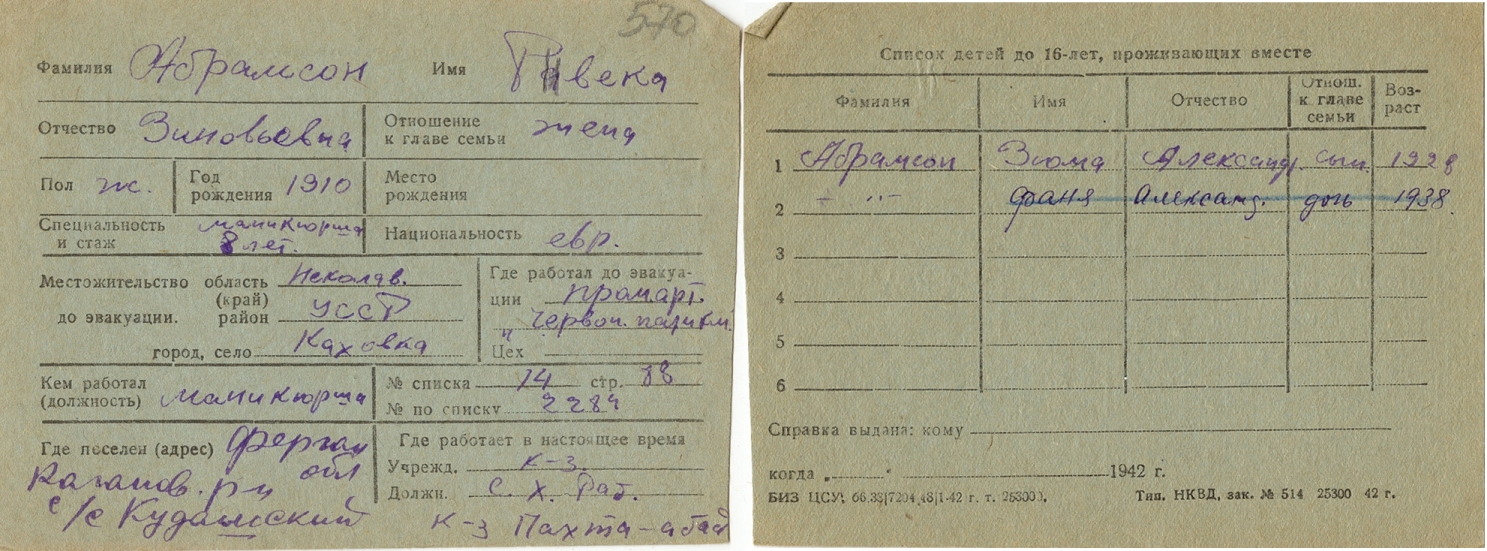 570
Фамилия Абрамсон Имя Ривека
Отчество Зиновьевна Отношение к главе семьи жена
Пол ж. Год рождения 1910 Место рождения
Специальность и стаж маникюрша 8 лет. Национальность евр.
Местожительство до эвакуации. область (край) Николав.
район УССР
город, село Каховка
Где работал до эвакуации Промарт.
" Червон. парикм.
Цех
Кем работал (должность) маникюрша
№ списка 14 стр. 88
№ по списку 2284
Где поселен (адрес) Ферган обл
Каганов. р-н
с/с Кудашский
Где работает в настоящее время
Учрежд. к-з.
Должн. с. х. раб.
к-з Пахта-абад
Список детей до 16-лет, проживающих вместе
Фамилия Имя Отчество Отнош. к главе семьи Возраст
1 Абрамсон Зюма Александр. сын. 1928
2 - " - Фаня Александ. дочь 1938.
3
4
5
6
Справка выдана: кому
когда „ " 1942 г.
БИЗ ЦСУ,
Тип. НКВД, зак. № 514 25300 42 г.